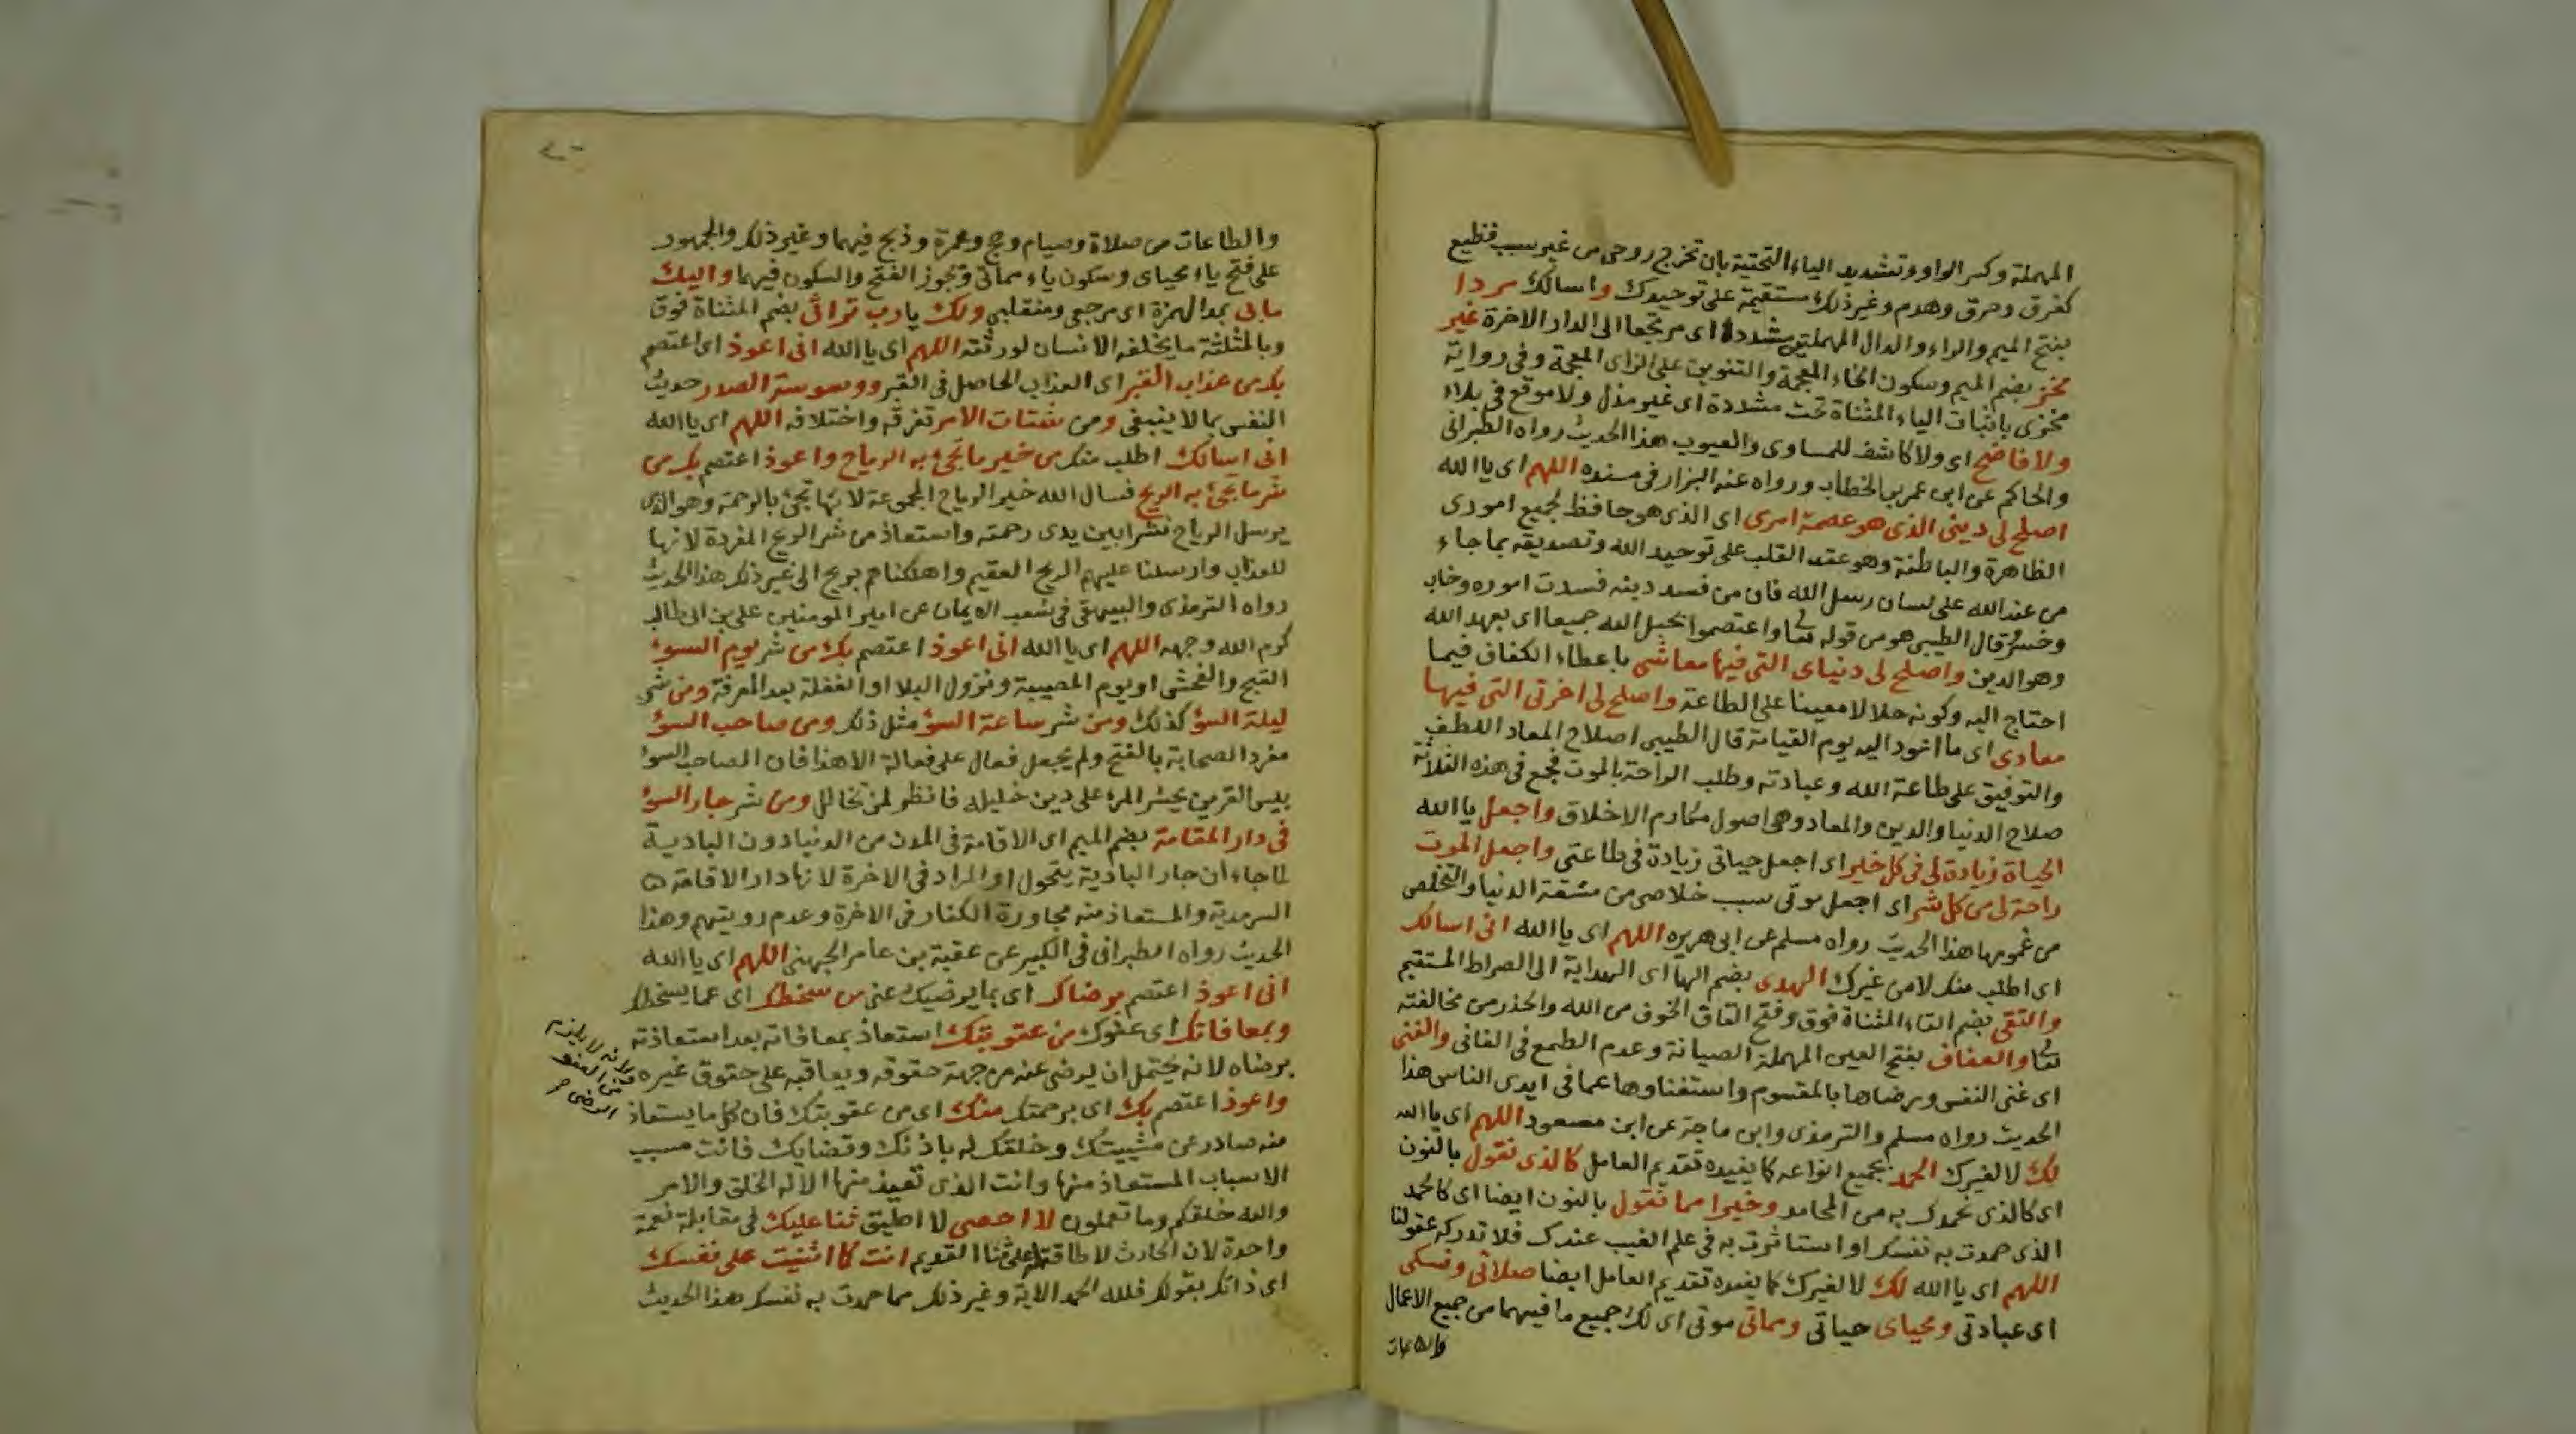 المهملة وكسر الواو وتشديد الياء التحتية بان تخرج روحى من غير سبب فظيع
كغرق وحرق وهدم وغير ذلك مستقيمة على توحيدك واسالك مردا
بفتح الميم والراء والدال المهملتين مشددة اى مرتجعا الى الدار الاخرة غير
مخز بضم الميم وسكون الخاء المعجمة والتنوين على الزاى المعجمة وفى رواية
مخزى باثبات الياء المثناة تحت مشددة اى غير مذل ولا موقع فى بلاء
ولا فاضح اى ولا كاشف للمساوى والعيوب هذا الحديث رواه الطبرانى
والحاكم عن ابن عمر بن الخطاب ورواه عنه البزار فى مسنده اللهم اى يا الله
اصلح لى دينى الذى هو عصمة امرى اى الذى هو حافظ لجميع امورى
الظاهرة والباطنة وهو عقد القلب على توحيد الله وتصديقه بما جاء
من عند الله على لسان رسل الله فان من فسد دينه فسدت اموره وخاب
وخسر قال الطيبى هو من قوله تعالى واعتصموا بحبل الله جميعا اى بعهد الله
وهو الدين واصلح لى دنياى التى فيها معاشى باعطاء الكفاف فيما
احتاج اليه وكونه حلالا معينا على الطاعة واصلح لى اخرتى التى فيها
معادى اى ما اعود اليه يوم القيامة قال الطيبى اصلاح المعاد اللطف
والتوفيق على طاعة الله وعبادته وطلب الراحة بالموت فجمع فى هذه الثلاثة
صلاح الدنيا والدين والمعاد وهى اصول مكارم الاخلاق واجعل يا الله
الحياة زيادة لى فى كل خير اى اجعل حياتى زيادة فى طاعتى واجعل الموت
راحة لى من كل شر اى اجعل موتى سبب خلاصى من مشقة الدنيا والتخلص
من غمومها هذا الحديث رواه مسلم عن ابى هريره اللهم اى يا الله انى اسالك
اى اطلب منك لا من غيرك الهدى بضم الها اى الهداية الى الصراط المستقيم
والتقى بضم التاء المثناة فوق وفتح القاف الخوف من الله والحذر من مخالفته
تعالى والعفاف بفتح العين المهملة الصيانة وعدم الطمع فى الفانى والغنى
اى غنى النفس ورضاها بالمقسوم واستغناوها عما فى ايدى الناس هذا
الحديث رواه مسلم والترمذى وابن ماجة عن ابن مسعود اللهم اى يا الله
لك لا لغيرك الحمد بجميع انواعه كما يفيده تقديم العامل كالذى نقول بالنون
اى كالذى نحمدك به من المحامد وخيرا مما نقول بالنون ايضا اى كالحمد
الذى حمدت به نفسك او استاثرت به فى علم الغيب عندك فلا تدركه عقولنا
اللهم اى يا الله لك لا لغيرك كما يفيده تقديم العامل ايضا صلاتى ونسكى
اى عبادتى ومحياى حياتى ومماتى موتى اى لك جميع ما فيهما من جميع الاعمال
والطاعات
والطاعات من صلاة وصيام وحج وعمرة وذبح فيهما وغير ذلك والجمهور
على فتح ياء محياى وسكون ياء مماتى ويجوز الفتح والسكون فيهما واليك
مابى بمد الهمزة اى مرجعى ومنقلبى ولك يا رب تراثى بضم المثناة فوق
وبالمثلثة ما يخلفه الانسان لورثته اللهم اى يا الله انى اعوذ اى اعتصم
بك من عذاب القبر اى العذاب الحاصل فى القبر ووسوسة الصدر حديث
النفس بما لا ينبغى ومن شتات الامر تفرقه واختلافه اللهم اى يا الله
انى اسالك اطلب منك من خير ما تجئ به الرياح واعوذ اعتصم بك من
شر ما تجئ به الريح فسال الله خير الرياح المجموعة لانها تجئ بالرحمة وهو الذى
يرسل الرياح نشرا بين يدى رحمته واستعاذ من شر الريح المفردة لانها
للعذاب وارسلنا عليهم الريح العقيم واهلكناهم بريح الى غير ذلك هذا الحديث
رواه الترمذى والبيهقى فى شعب الايمان عن امير المومنين على بن ابى طالب
كرم الله وجهه اللهم اى يا الله انى اعوذ اعتصم بك من شر يوم السوء
القبح والفحش او يوم المصيبة ونزول البلا او الغفلة بعد المعرفة ومن شر
ليلة السؤ كذلك ومن شر ساعة السؤ مثل ذلك ومن صاحب السؤ
مفرد الصحابة بالفتح ولم يجعل فعال على فعالة الا هذا فان الصاحب السوء
بيس القرين يحشر المرء على دين خليله فانظر لمن تخالل ومن شر جار السوء
فى دار المقامة بضم الميم اى الاقامة فى المدن من الدنيا دون البادية
لما جاء ان جار البادية يتحول او المراد فى الاخرة لانها دار الاقامة
السرمدية والمستعاذ منه مجاورة الكفار فى الاخرة وعدم رويتهم وهذا
الحديث رواه الطبرانى فى الكبير عن عقبة بن عامر الجهنى اللهم اى يا الله
انى اعوذ اعتصم برضاك اى بما يرضيك عنى من سخطك اى عما يسخطك
وبمعافاتك اى عفوك من عقوبتك استعاذ بمعافاته بعد استعاذته
برضاه لانه يحتمل ان يرضى عنه من جهة حقوقه ويعاقبه على حقوق غيره
واعوذ اعتصم بك اى برحمتك منك اى من عقوبتك فان كل ما يستعاذ
منه صادر عن مشيتك وخلقك له باذنك وقضايك فانت مسبب
الاسباب المستعاذ منها وانت الذى تعيذ منها الا له الخلق والامر
والله خلقكم وما تعملون لا احصى لا اطيق ثنا عليك فى مقابلة نعمة
واحدة لان الحادث لا طاقة له على ثنا القديم انت كما اثنيت على نفسك
اى ذاتك بقولك فلله الحمد الاية وغير ذلك مما حمدت به نفسك هذا الحديث
لانه لا يلزم
من العفو
الرضى